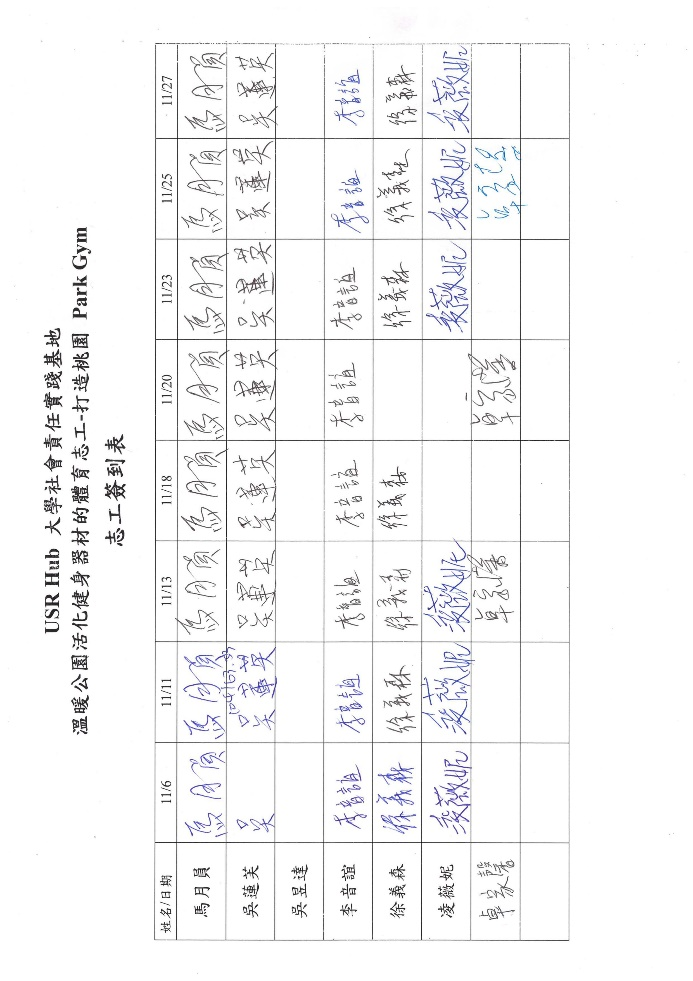 USR Hub 大學社會責任實踐基地
溫暖公園活化健身器材的體育志工-打造桃園 Park Gym
志工簽到表
姓名/日期 11/6 11/11 11/13 11/18 11/20 11/23 11/25 11/27
馬月員 馬月員 馬月員 馬月員 馬月員 馬月員 馬月員 馬月員 馬月員
吳蓮芙 吳 吳蓮芙 吳蓮芙 吳蓮芙 吳蓮芙 吳蓮芙 吳蓮芙 吳蓮芙
吳昱達
李音誼 李音誼 李音誼 李音誼 李音誼 李音誼 李音誼 李音誼 李音誼
徐義森 徐義森 徐義森 徐義森 徐義森 徐義森 徐義森 徐義森
凌薇妮 凌薇妮 凌薇妮 凌薇妮 凌薇妮 凌薇妮 凌薇妮
卓家馨 卓家馨 卓家馨 卓家馨